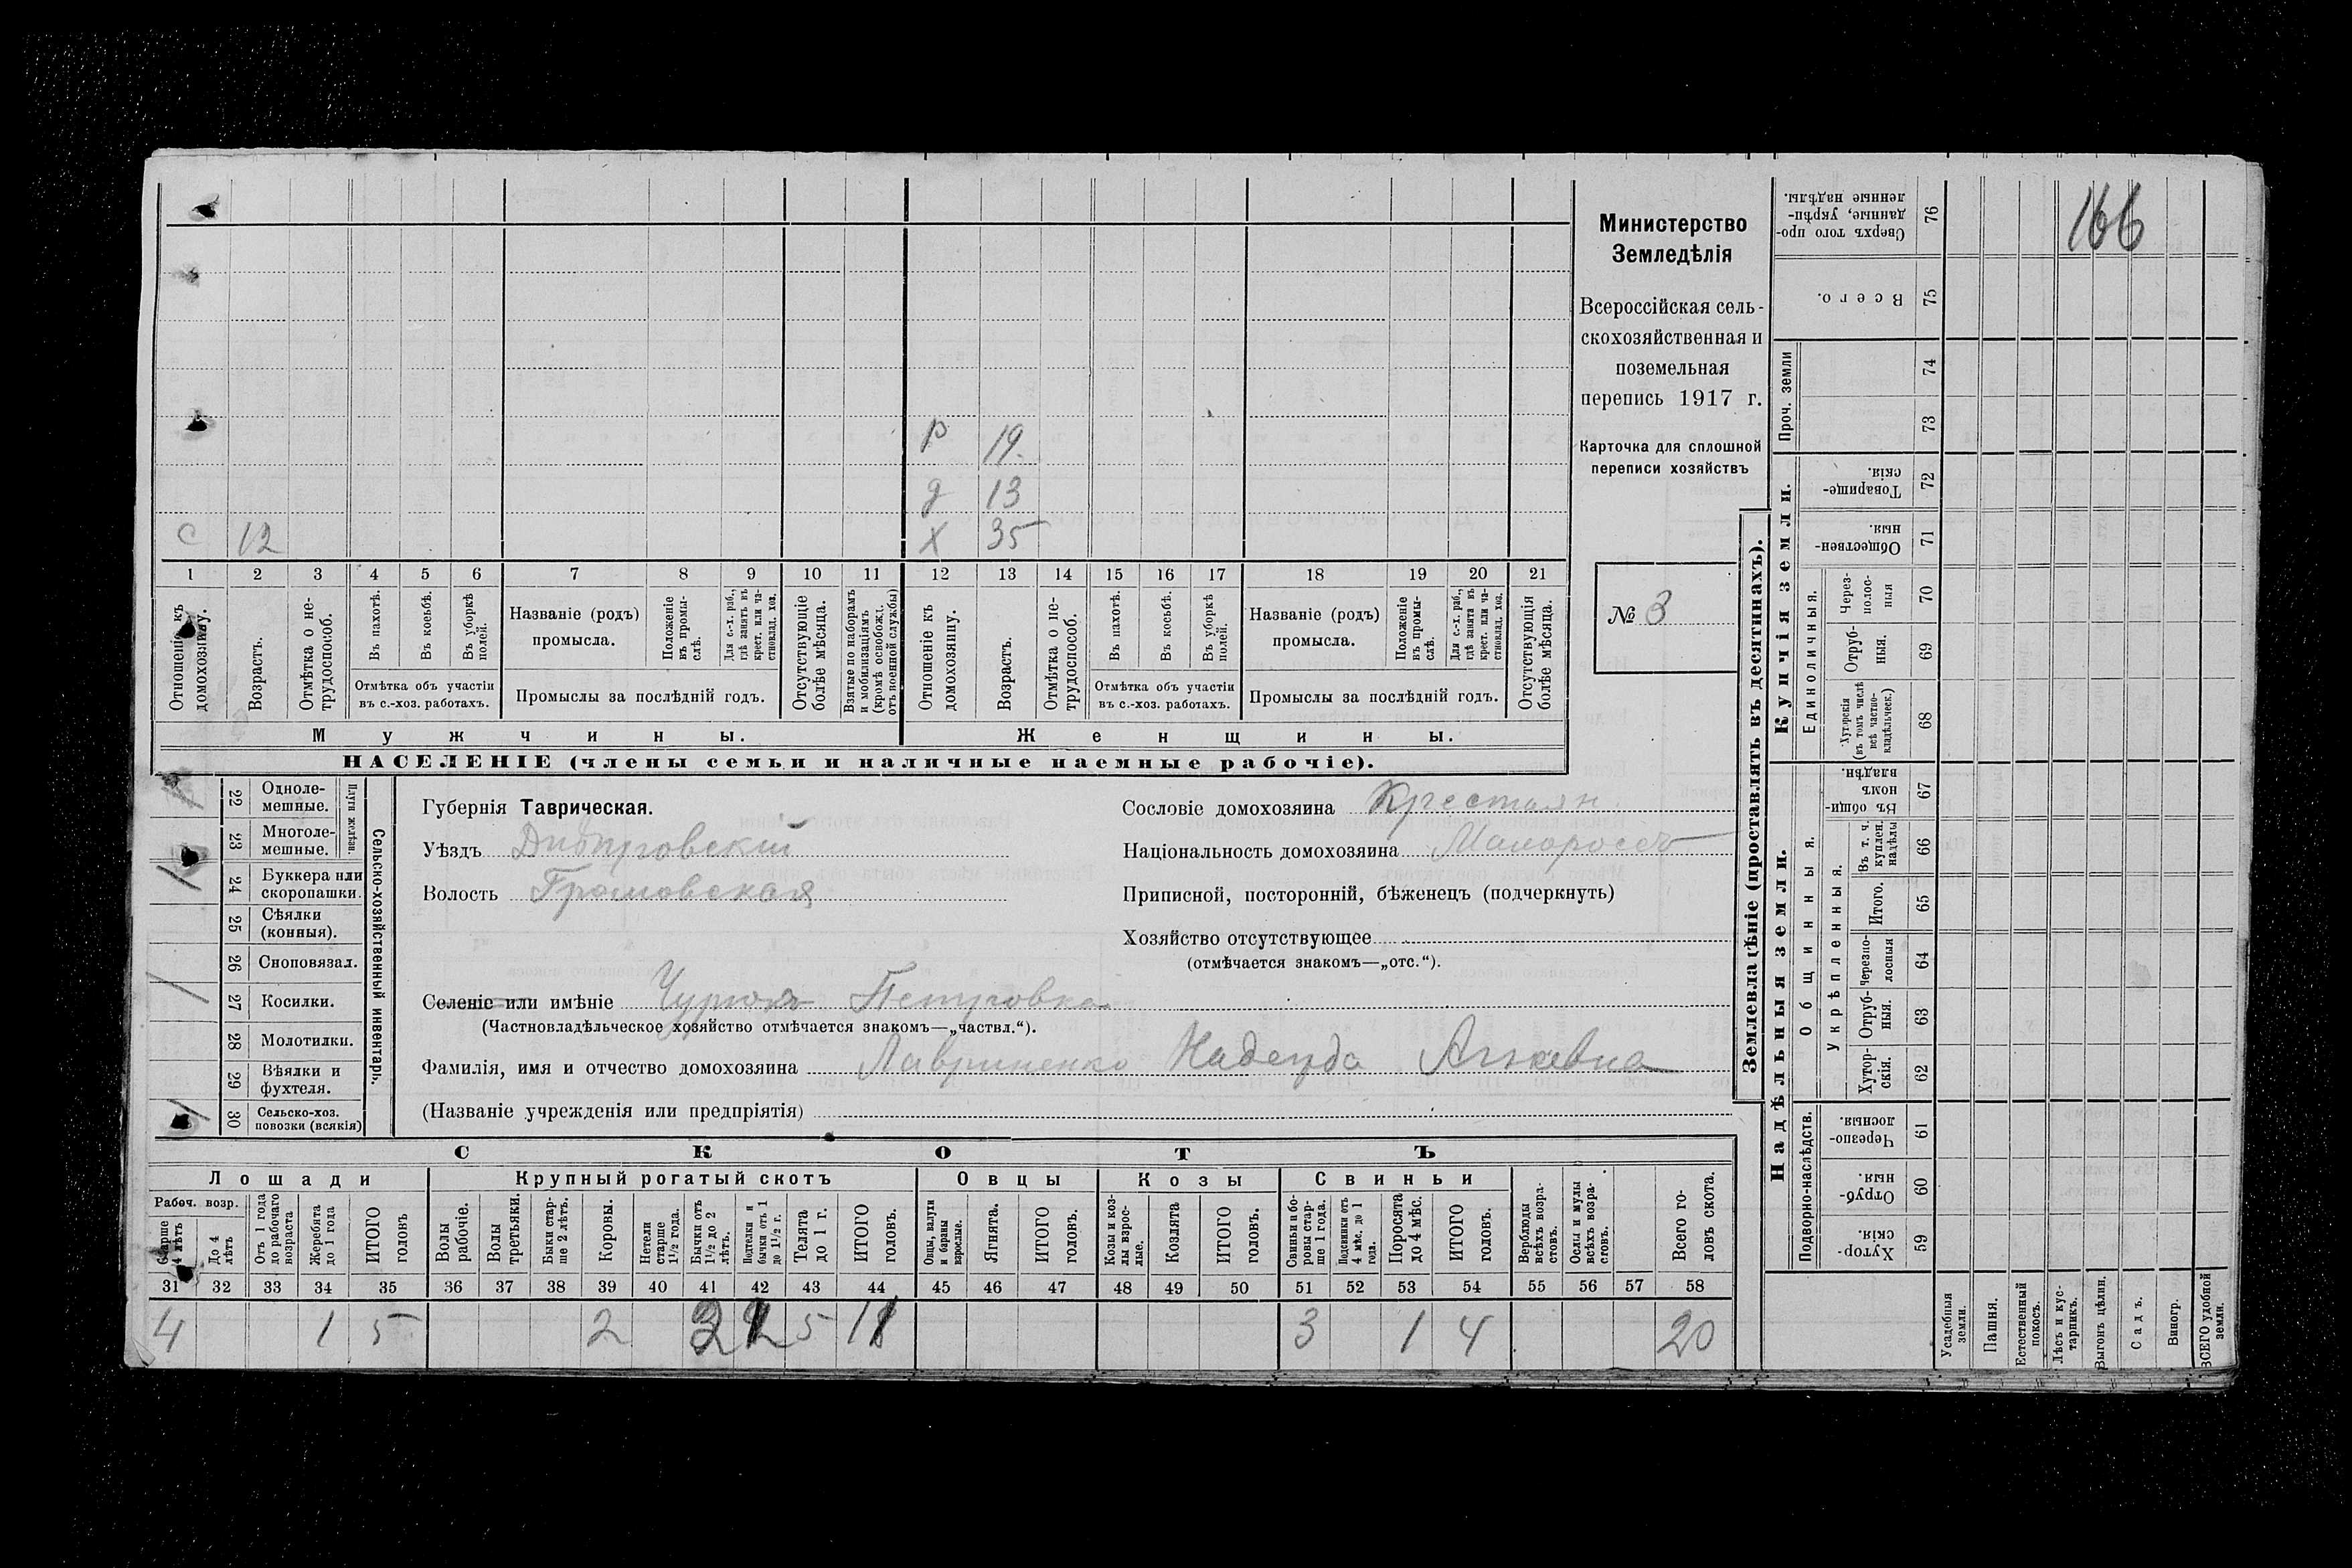 166
Министерство
Земледѣлія
Всероссійская сель-
скохозяйственная и
поземельная
перепись 1917 г.
Карточка для сплошной
переписи хозяйствъ
№ 3
р 19.
д 13
с 12 х 35
1 2 3 4 5 6 7 8 9 10 11 12 13 14 15 16 17 18 19 20 21
Отношеніе къ домохозяину.
Возрастъ.
Отмѣтка о не-
трудоспособ.
Въ пахотѣ.
Въ косьбѣ.
Въ уборкѣ
полей.
Отмѣтка объ участіи
въ с.-хоз. работахъ.
Названіе (родъ)
промысла.
Положеніе
въ промы-
слѣ.
Для с.-х. раб.,
гдѣ занятъ въ
крест. или ча-
стновлад. хоз.
Промыслы за послѣдній годъ.
Отсутствующіе
болѣе мѣсяца.
Взятые по наборамъ
и мобилизаціямъ
(кромѣ освобожд.
отъ военной службы)
Отношеніе къ
домохозяину.
Возрастъ.
Отмѣтка о не-
трудоспособ.
Въ пахотѣ.
Въ косьбѣ.
Въ уборкѣ
полей.
Отмѣтка объ участіи
въ с.-хоз. работахъ.
Названіе (родъ)
промысла.
Положеніе
въ промы-
слѣ.
Для с.-х. раб.,
гдѣ занята въ
крест. или ча-
стновлад. хоз.
Промыслы за послѣдній годъ.
Отсутствующія
болѣе мѣсяца.
Мужчины. Женщины.
НАСЕЛЕНІЕ (члены семьи и наличные наемные рабочіе).
22 Одноле-
мешные.
23 Многоле-
мешные.
Плуги желѣзн.
24 Буккера или
скоропашки.
25 Сѣялки
(конныя).
26 Сноповязал.
27 Косилки.
28 Молотилки.
29 Вѣялки и
фухтеля.
30 Сельско-хоз.
повозки (всякія)
Сельско-хозяйственный инвентарь.
Губернія Таврическая.
Уѣздъ Днѣпровскій
Волость Громовская
Сословіе домохозяина Крестьян.
Національность домохозяина Малороссъ
Приписной, посторонній, бѣженецъ (подчеркнуть)
Хозяйство отсутствующее
(отмѣчается знакомъ—„отс.“).
Селеніе или имѣніе Чурюкъ Петровка
(Частновладѣльческое хозяйство отмѣчается знакомъ—„частвл.“).
Фамилія, имя и отчество домохозяина Лавриненко Надежда
(Названіе учрежденія или предпріятія)
СКОТЪ
Лошади Крупный рогатый скотъ Овцы Козы Свиньи
Рабоч. возр.
Старше
4 лѣтъ
До 4
лѣтъ
Отъ 1 года
до рабочаго
возраста
Жеребята
до 1 года
ИТОГО
головъ
Волы
рабочіе.
Волы
третьяки.
Быки стар-
ше 2 лѣтъ.
Коровы.
Нетели
старше
1½ года.
Бычки отъ
1½ до 2
лѣтъ.
Подтелки и
бычки отъ 1
до 1½ г.
Телята
до 1 г.
ИТОГО
головъ.
Овцы, валухи
и бараны
взрослые.
Ягнята.
ИТОГО
головъ.
Козы и коз-
лы взрос-
лые.
Козлята
ИТОГО
головъ.
Свиньи и бо-
ровы стар-
ше 1 года.
Подсвинки отъ
4 мѣс. до 1
года.
Поросята
до 4 мѣс.
ИТОГО
головъ.
Верблюды
всѣхъ возра-
стовъ.
Ослы и мулы
всѣхъ возра-
стовъ.
Всего го-
ловъ скота.
31 32 33 34 35 36 37 38 39 40 41 42 43 44 45 46 47 48 49 50 51 52 53 54 55 56 57 58
4 1 5 2 5 3 1 4 20
Землевладѣніе (проставлять въ десятинахъ).
Купчія земли.
Надѣльныя земли.
Проч. земли
Единоличныя.
Общинныя.
Укрѣпленныя.
Подворно-наслѣдств.
76 Сверхъ того про-
данные, укрѣп-
ленные надѣлы.
75 Всего.
74
73
72 Товарище-
скія.
71 Обществен-
ныя.
70 Через-
полос-
ныя
69 Отруб-
ныя.
68 Хуторскія
(въ томъ числѣ
всѣ частно-
владѣльческ.)
67 Въ общи-
номъ
владѣн.
66 Въ т. ч.
куплен.
надѣлы
65 Итого.
64 Черезпо-
лосныя
63 Отруб-
ныя.
62 Хутор-
скія.
61 Черезпо-
лосныя.
60 Отруб-
ныя.
59 Хутор-
скія.
Усадебныя
земли.
Пашня.
Естественный
покосъ.
Лѣсъ и кус-
тарникъ.
Выгонъ цѣлин.
Садъ.
Виногр.
ВСЕГО удобной
земли.